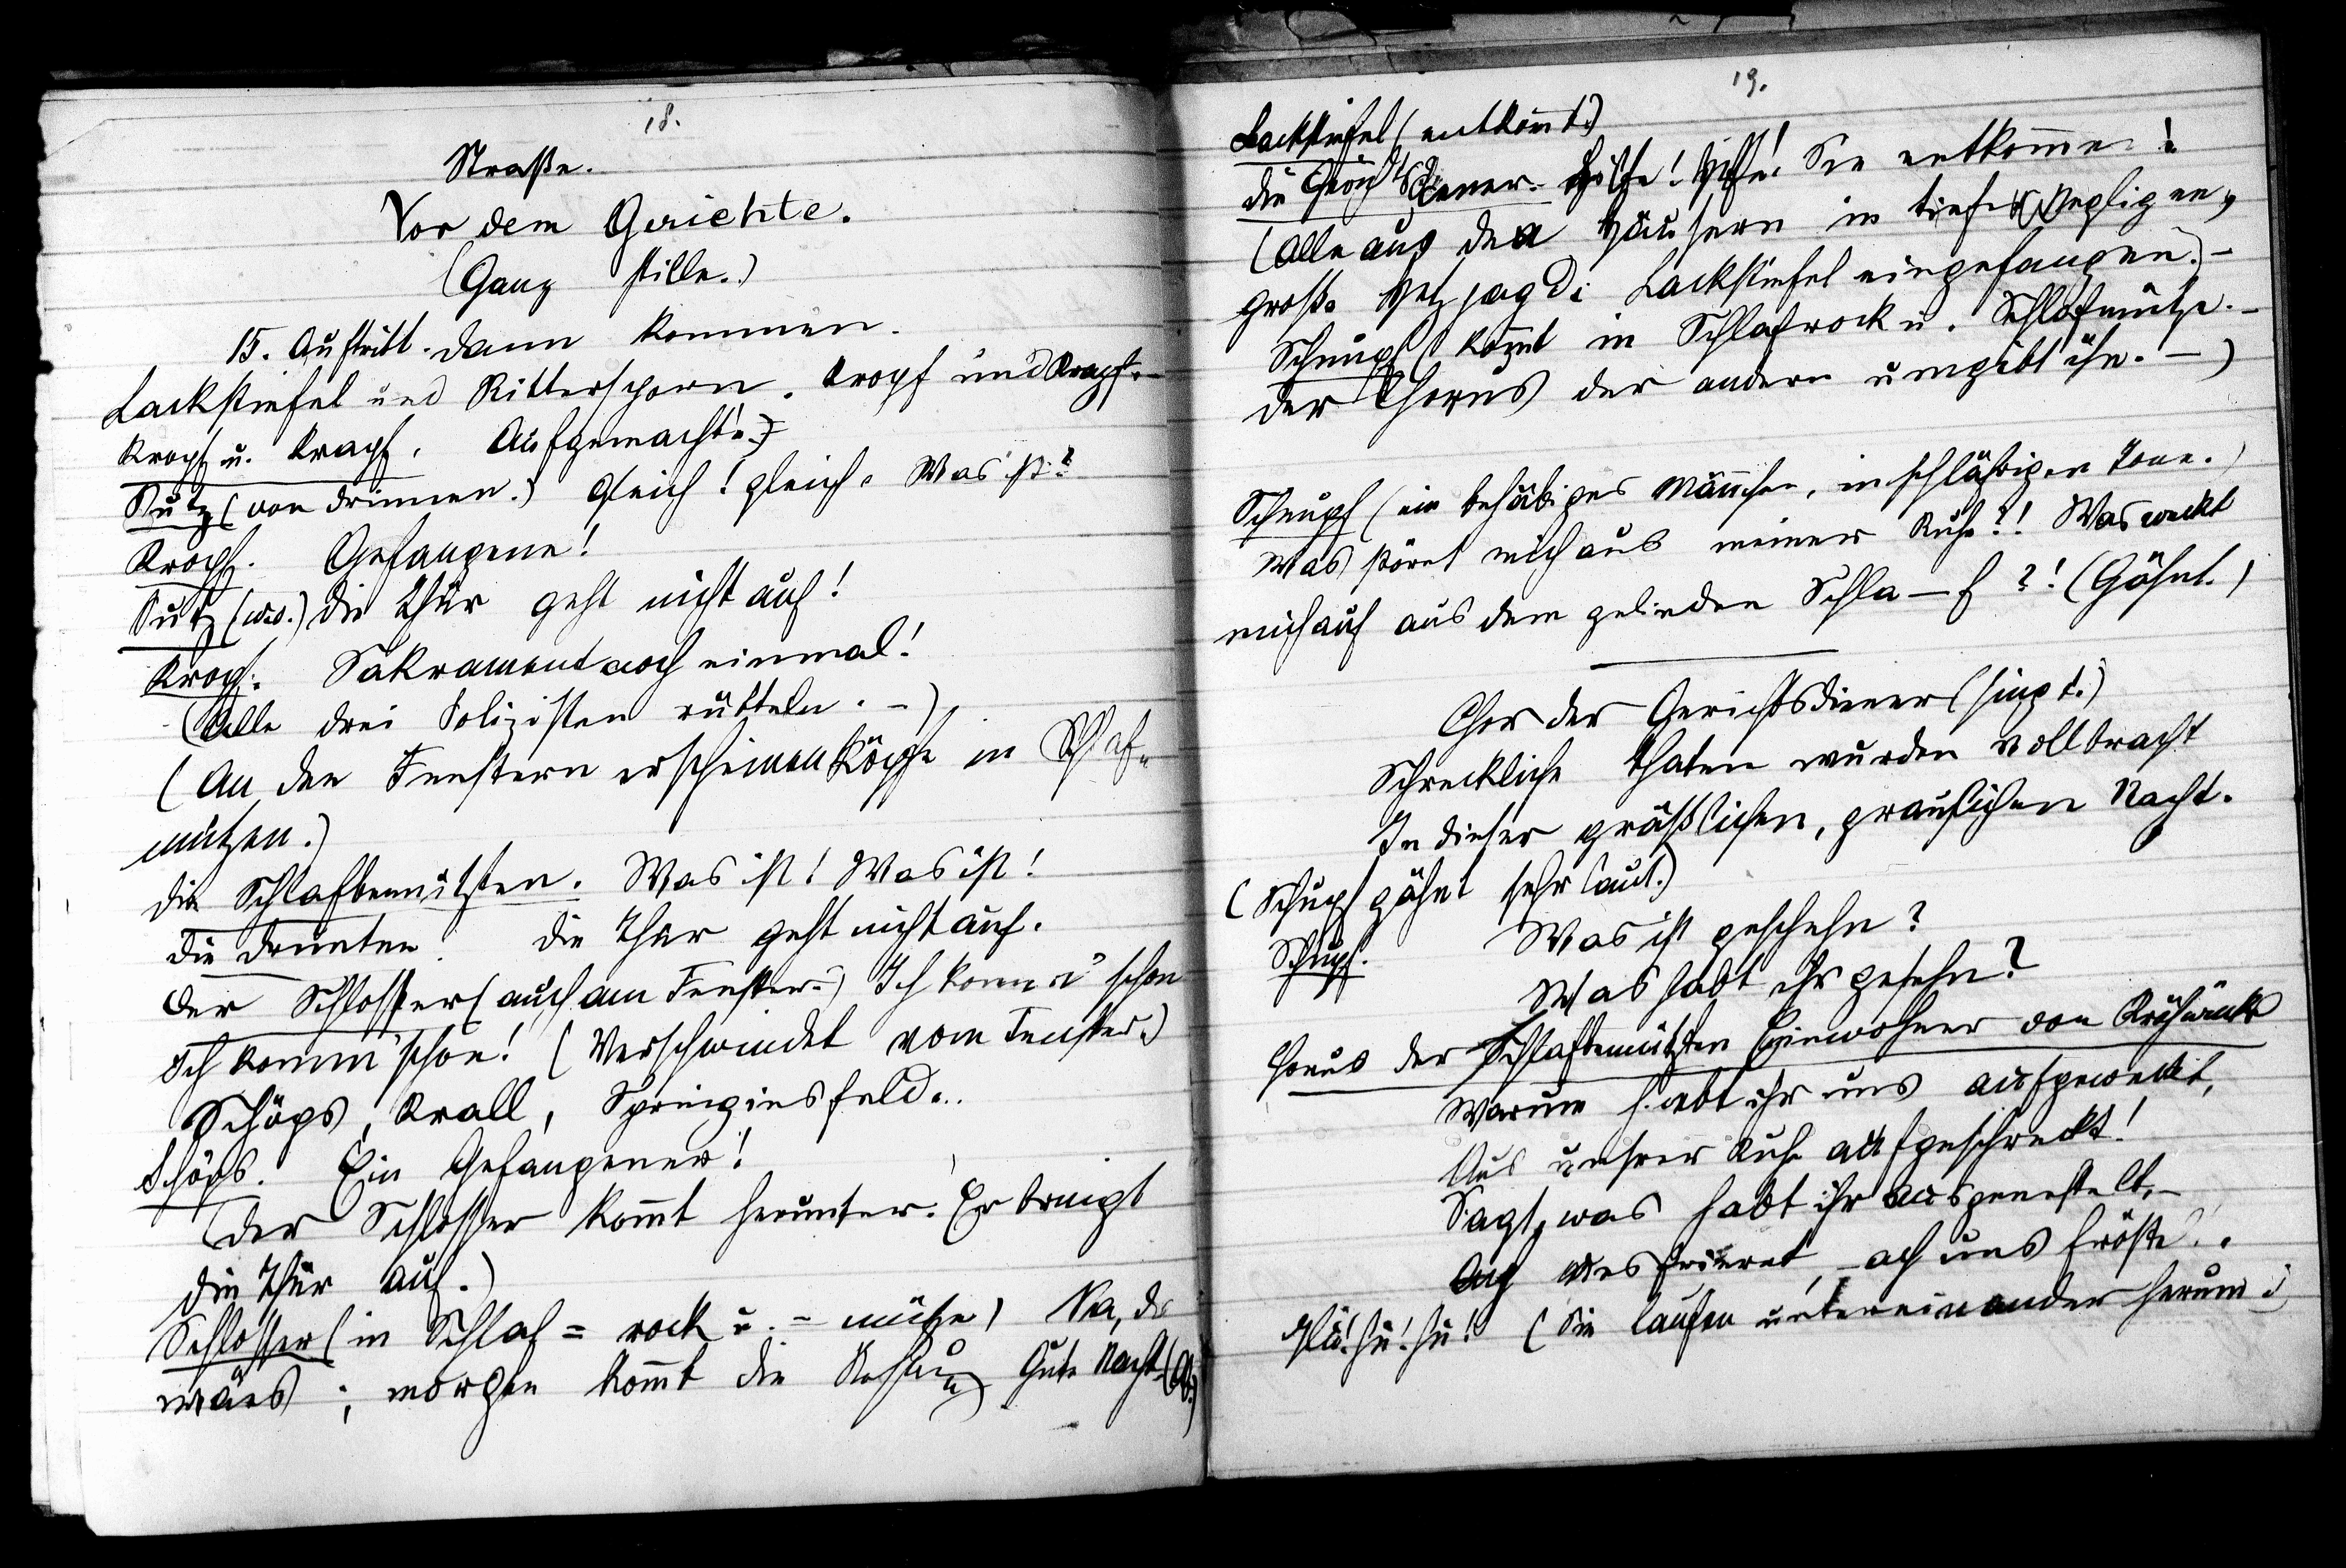 18.
Straße.
Vor dem Gerichte.
(Ganz stille.)
15. Auftritt. Dann kommen.
Lackstiefel und Rittersporn. Kropf und Krapf.-
Kropf u. Krapf. Aufgemacht!
Stutz (von drinnen.) Gleich! gleich. Was ist?
Kropf. Gefangene!
Stutz (w.o.) Die Thür geht nicht auf!
Kropf. Sakrament noch einmal!
(Alle drei Polizisten rütteln. -)
(An den Fenstern erscheinen Köpfe in Schlaf-
mützen.)
Die Schlafbemützten. Was ist! Was ist!
Die Drunten. Die Thür geht nicht auf.
Der Schlosser (auch am Fenster.) Ich komm' schon
Ich komm' schon! (Verschwindet vom Fenster.)
Schöps, Krall, Springinsfeld..
Schöps. Ein Gefangener!
(Der Schlosser kommt herunter. Er bringt
die Thür auf.)
Schlosser (in Schlaf = rock u. = mütze) Na, da
wärs; morgen kommt die Rechnung Gute Nacht. (Ab.)
19.
Lackstiefel (entkommt.)
Die Gerichtsdiener. Hilfe! Hilfe! Sie entkommen!
(Alle aus den Häusern in tiefer Negligen,
große Hetzjagd: Lackstiefel eingefangen.) -
Schnupf (kommt in Schlafrock u. Schlafmütze. -
Der Chorus der andern umgibt ihn. -)
Schnupf (ein behäbiges Männchen, in schläfrigen Tone.)
Was störet mich aus meiner Ruhe?! Was weckt
mich auf aus dem gelinden Schla — f ?! (Gähnt.)
Chor der Gerichtsdiener (singt.)
Schreckliche Thaten wurden vollbracht
In dieser gräßlichen, grauslichen Nacht.
(Schnupf gähnt sehr laut.)
Schnupf. Was ist geschehn?
Was habt ihr gesehn?
Chorus der Schlafbemützten Einwohner von Krähwinkl
Warum habt ihr uns aufgeweckt,
Aus unsrer Ruhe aufgeschreckt!
Sagt, was habt ihr
uns frieret, - ach uns fröstelt.
Hu! hu! hu! (Sie laufen untereinander herum